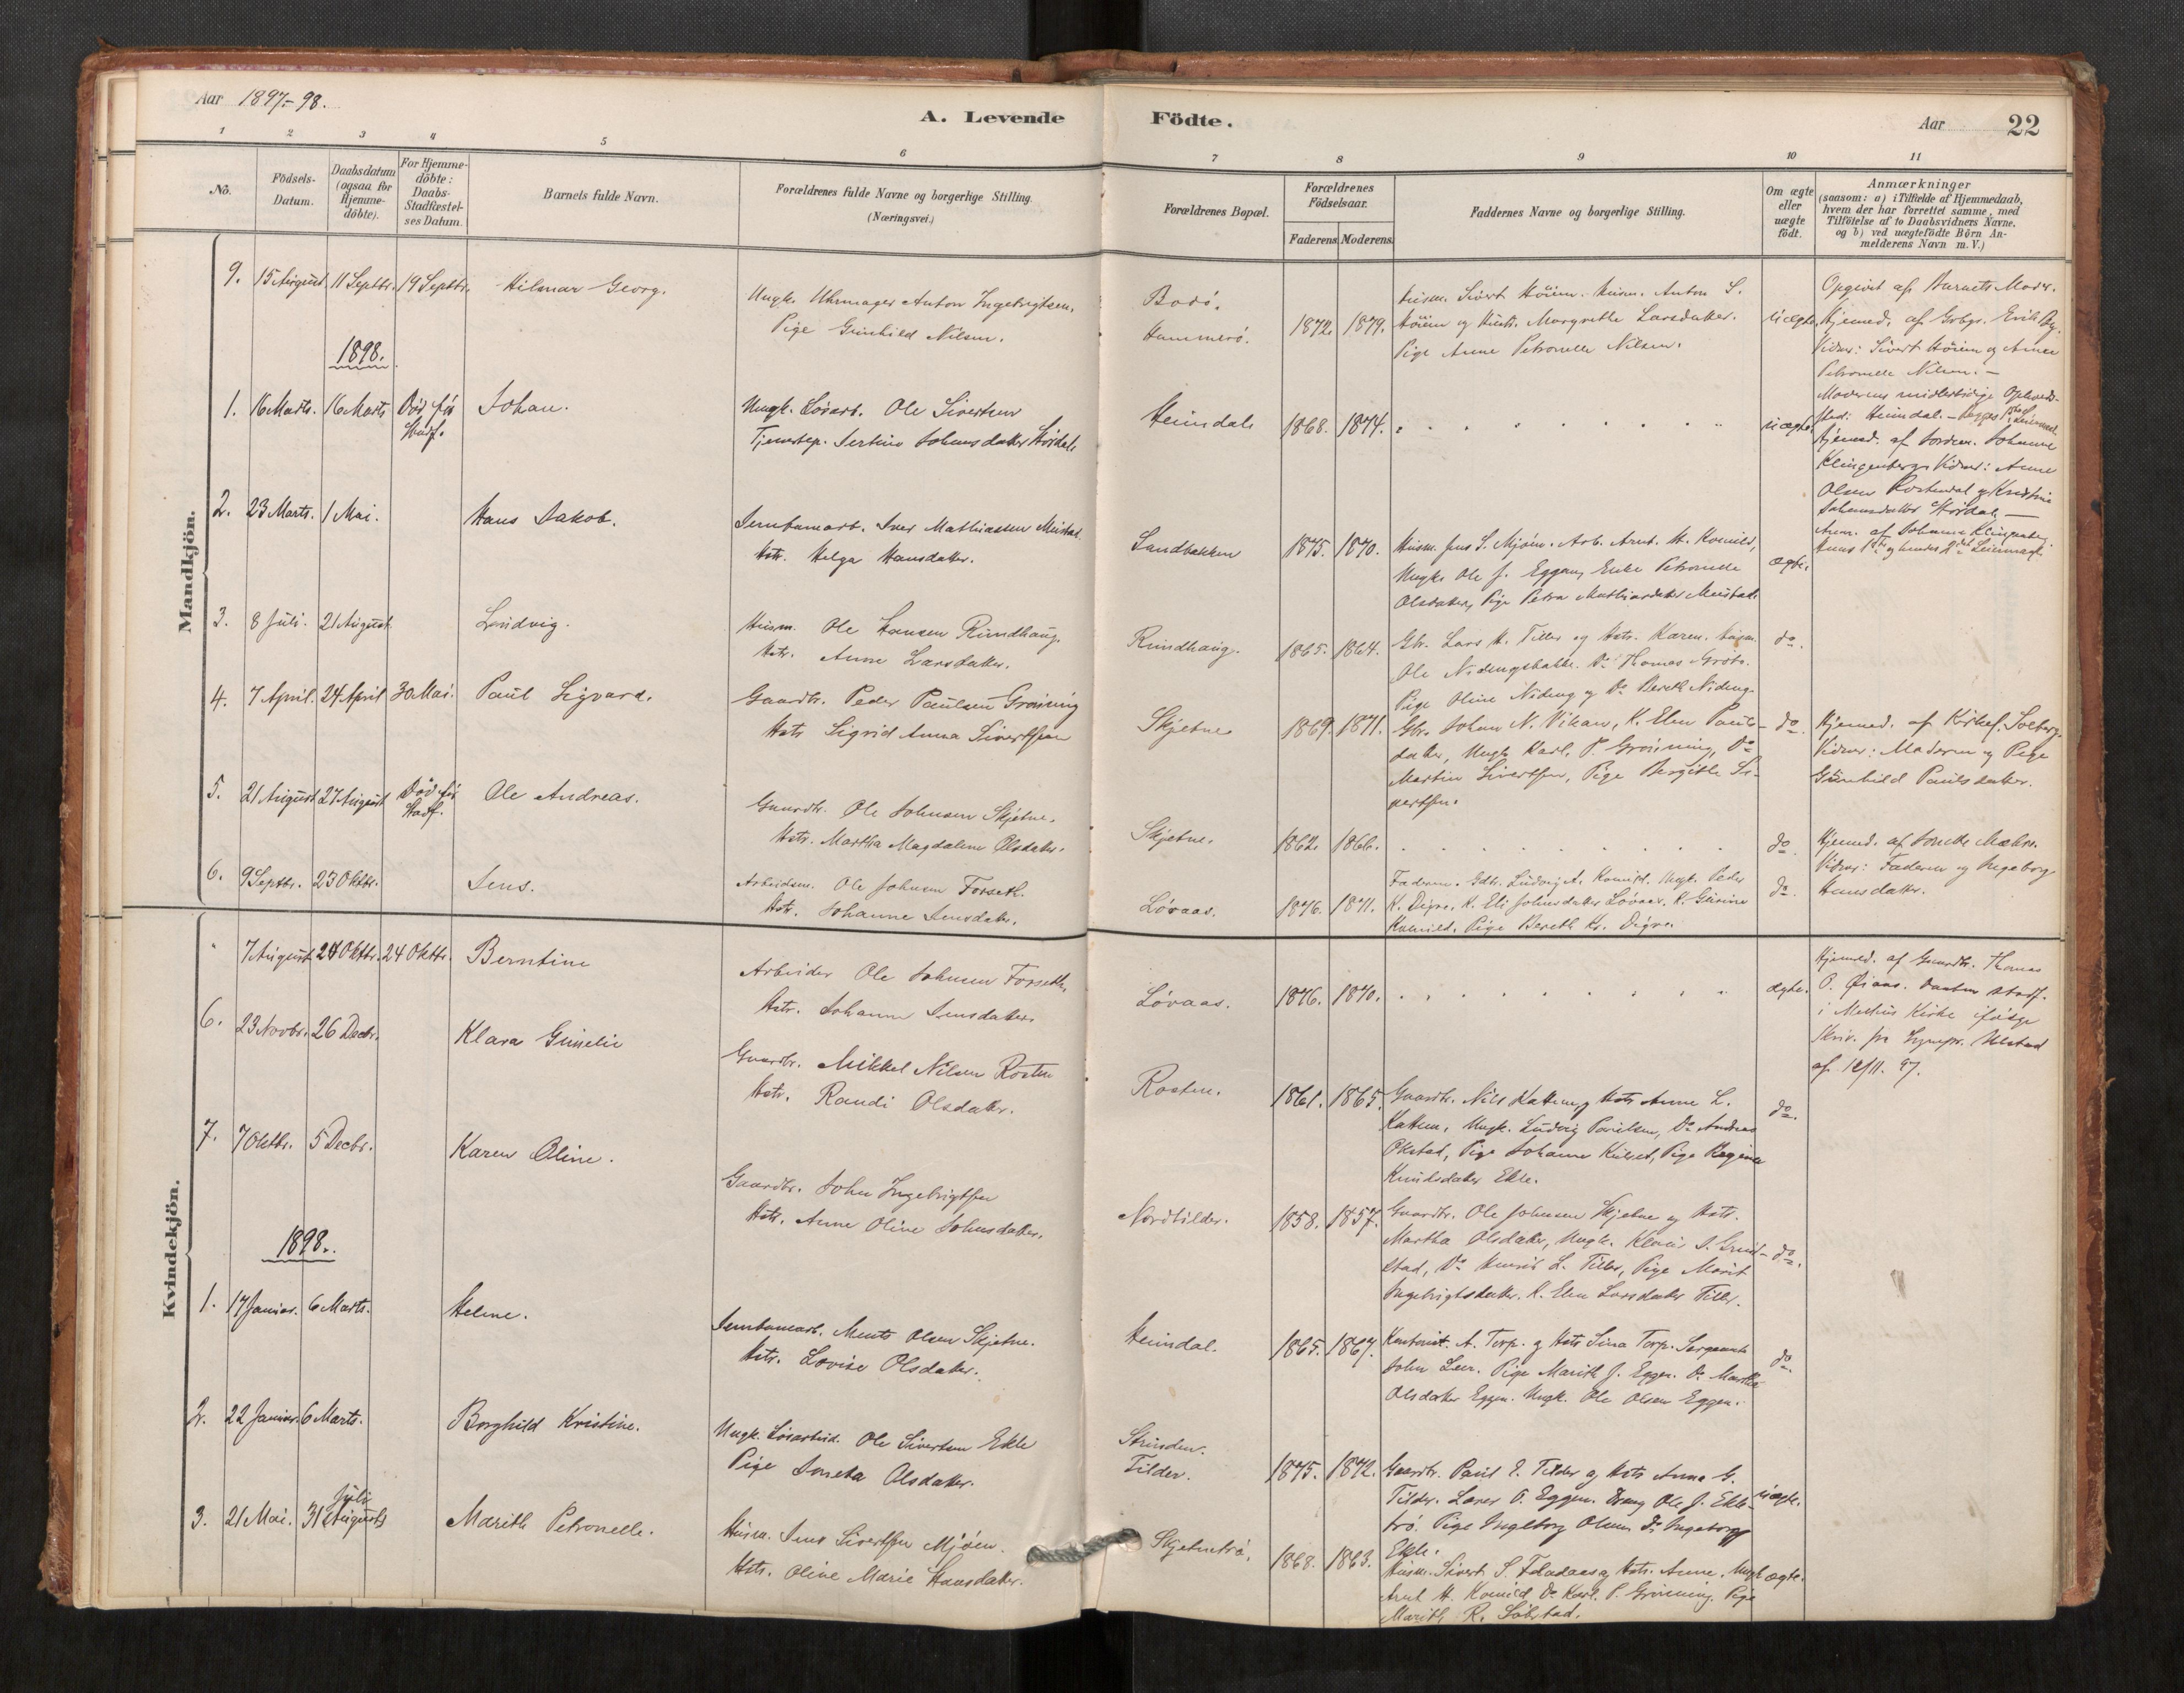 Aar 1897-98.
A. Levende
Födte.
Aar
22
1
2
3
4
5
6
7
8
9
10
11
No.
Födsels-
Datum.
Daabsdatum
(ogsaa for
Hjemme-
döbte).
For Hjemme-
döbte:
Daabs-
Stadfæstel-
ses Datum.
Barnets fulde Navn.
Forældrenes fulde Navne og borgerlige Stilling.
(Næringsvei.)
Forældrenes Bopæl.
Forældrenes
Födselsaar.
Faderens.
Moderens.
Faddernes Navne og borgerlige Stilling.
Om ægte
eller
uægte
födt.
Anmærkninger
(saasom: a) i Tilfælde af Hjemmedaab,
hvem der har forrettet samme, med
Tilföielse af to Daabsvidners Navne,
og b) ved uægtefödte Börn An-
melderens Navn m. V.)
Mandkjön.
9. 15 August. 11 Septbr. 19 Septbr. Hilmar Georg.
Ungk. Uhrmager Anton Ingebrigtsen.
Pige Gunhild Nilsen.
Bodö.
Hammerö.
1872. 1879.
Husm. Sivert Höiem. Husm. Anton S.
Höiem og Hustr. Margrethe Larsdatter.
Pige Anne Petronelle Nilsen.
uægte.
Opgivet af Barnets Moder.
Hjemmed. af Grbgr. Erik
Vidner: Sivert Höiem og Anne
Petronelle Nilsen. -
1898.
1. 16 Marts. 16 Marts Död för
Stadf.
Johan.
Ungk. Lösarb. Ole Sivertsen
Tjenestep. Sertine Johnsdatter Stördal
Heimdal.
1868. 1874.
uægte.
Moderens midlertidige Opholds-
sted: Heimdal.
Hjemmed. af Jordem. Johanne
Klingenberg. Vidner: Anne
Olsen Rostendal og Kristine
Johannsdatter Stördal -
Anm. af Johanna Klingenberg.
2. 23 Marts. 1 Mai.
Hans Jakob.
Jernbanearb. Iver Mathiassen Meistad.
Hstr. Helga Hansdatter.
Sandbakken
1875. 1870.
Husm. Jens S. Mjöen. Arb. Arnt. H. Komild,
Ungk. Ole J. Eggen, Enke Petronelle
Olsdatter, Pige Petra Mathiasdatter Meistad.
ægte.
3. 8 Juli. 21 August
Ludvig.
Husm. Ole Hansen Rundhaug.
Hstr. Anne Larsdatter.
Rundhaug.
1865. 1864.
Gbr. Lars H. Tiller og Hstr. Karen. Husm.
Ole Nidengsbakke. Do Thomas Gröto.
Pige Oline Nideng og Do Bereth Nideng.
do.
4. 7 April. 24 April 30 Mai.
Paul Sigvard.
Gaardbr. Peder Paulsen Gröning
Hstr Sigrid Anna Sivertsen
Skjetne
1869. 1871.
Gbr. Johan N. Vikan, K. Elen Pauls-
datter, Ungk. Karl. P. Gröning, Do
Martin Sivertsen, Pige Bergitte Si-
vertsen.
do.
Hjemmed. af Kirkes. Solberg.
Vidner: Moderen og Pige
Gunhild Paulsdatter.
5. 21 August 27 August Död för
Stadf.
Ole Andreas.
Gaardbr. Ole Johnsen Skjetne.
Hstr. Martha Magdalene Olsdatter.
Skjetne.
1862. 1866.
do.
Hjemmed. af Jonetta Mæhre.
Vidner: Faderen og Ingeborg
Hansdatter.
6. 9 Septbr. 23 Oktbr.
Jens.
Arbeidsm. Ole Johnsen Forseth.
Hstr. Johanne Jensdatter.
Lövaas.
1876. 1871.
Faderen. Gdbr. Ludvig A. Komild. Ungk. Peder
K. Digre. K. Eli Johnsdatter Lövaas. K. Gurine
Komild. Pige Bereth Kr. Digre.
do.
Kvindekjön.
" 7 August 24 Oktbr. 24 Oktbr.
Berntine
Arbeider Ole Johnsen Forseth
Hstr. Johanne Jensdatter
Lövaas.
1876. 1870.
ægte.
Hjemmed. af Gaardbr. Thomas
P. Öiaas. Daaben stadf.
i Melhus Kirke ifölge
Skriv. fra Sognepr. Ulstad
af 12/11. 97.
6. 23 Novbr. 26 Decbr.
Klara Gunelie
Gaardbr. Mikkel Nilsen Rosten
Hstr. Randi Olsdatter.
Rosten.
1861. 1865.
Gaardbr. Nils Kattem og Hstr Anne L.
Kattem, Ungk. Ludvig Paulsen, Do Andreas
Okstad, Pige Johanne Kulset, Pige Regine
Knudsdatter Ekle.
do.
7. 7 Oktbr. 5 Decbr.
Karen Oline.
Gaardbr. John Ingebrigtsen
Hstr. Anne Oline Johnsdatter.
Nordtilder.
1858. 1857.
Gaardbr. Ole Johnsen Skjetne og Hstr.
Martha Olsdatter, Ungk. Klaus J. Grud-
stad, Do Henrik L. Tiller, Pige Marit
Ingebrigtsdatter. K. Elen Larsdatter Tiller.
do.
1898.
1. 17 Januar. 6 Marts.
Helene.
Jernbanearb. Ments Olsen Skjetne.
Hstr. Lovise Olsdatter.
Heimdal.
1865. 1867.
Kontorist. A. Torp. og Hstr Sina Torp. Sergeant
John Leer. Pige Marith J. Eggen. Do Martha
Olsdatter Eggen. Ungk. Ole Olsen Eggen.
do.
2. 22 Januar. 6 Marts.
Borghild Kristine.
Ungk. Lösarbeid. Ole Sivertsen Ekle
Pige Jonetta Olsdatter.
Strinden.
Tilder.
1875. 1872.
Gaardbr. Paul E. Tilder og Hstr Anna G.
Tilder. Lars O. Eggen. Dreng Ole J. Ekle-
trö. Pige Ingeborg Olsen. Do Ingeborg
Ekle.
uægte.
3. 21 Mai. 31 Juli
August
Marith Petronelle.
Husm. Jens Sivertsen Mjöen.
Hstr. Oline Marie Hansdatter.
Skjetnetrö.
1868. 1863.
Husm. Sivert S. Flaadaas og Hstr. Anne. Ungk
Arnt H. Komild Do Karl. P. Gröning. Pige
Marith R. Sölstad.
ægte.